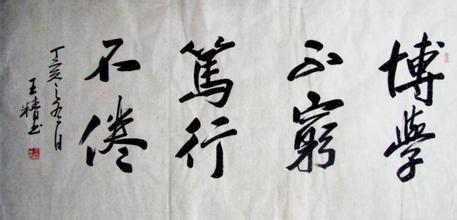 博學
不窮
篤行
不倦
丁亥之九月
王精书